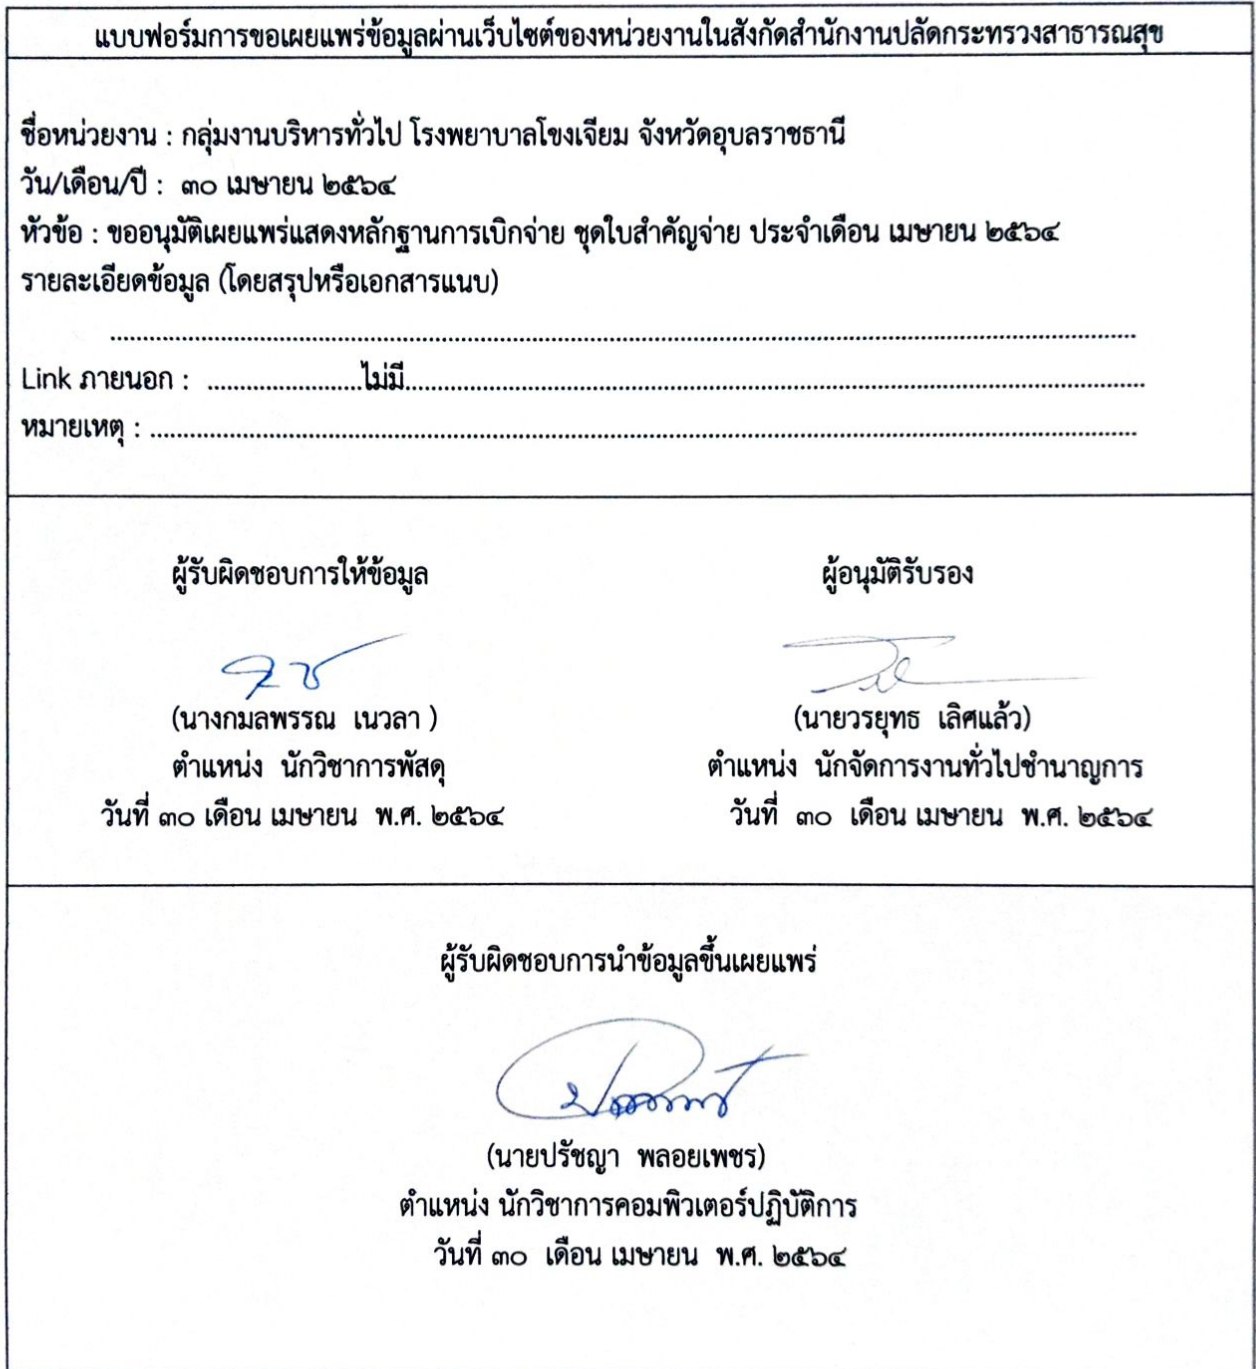 แบบฟอร์มการขอเผยแพร่ข้อมูลผ่านเว็บไซต์ของหน่วยงานในสังกัดสำนักงานปลัดกระทรวงสาธารณสุข
ชื่อหน่วยงาน : กลุ่มงานบริหารทั่วไป โรงพยาบาลโขงเจียม จังหวัดอุบลราชธานี
วัน/เดือน/ปี : ๓๐ เมษายน ๒๕๖๔
หัวข้อ : ขออนุมัติเผยแพร่แสดงหลักฐานการเบิกจ่าย ชุดใบสำคัญจ่าย ประจำเดือน เมษายน ๒๕๖๔
รายละเอียดข้อมูล (โดยสรุปหรือเอกสารแนบ)
Link ภายนอก : ........................ไม่มี................................................................
หมายเหตุ : ................................................................
ผู้รับผิดชอบการให้ข้อมูล
(นางกมลพรรณ เนวลา )
ตำแหน่ง นักวิชาการพัสดุ
วันที่ ๓๐ เดือน เมษายน พ.ศ. ๒๕๖๔
ผู้อนุมัติรับรอง
(นายวรยุทธ เลิศแล้ว)
ตำแหน่ง นักจัดการงานทั่วไปชำนาญการ
วันที่ ๓๐ เดือน เมษายน พ.ศ. ๒๕๖๔
ผู้รับผิดชอบการนำข้อมูลขึ้นเผยแพร่
(นายปรัชญา พลอยเพชร)
ตำแหน่ง นักวิชาการคอมพิวเตอร์ปฏิบัติการ
วันที่ ๓๐ เดือน เมษายน พ.ศ. ๒๕๖๔